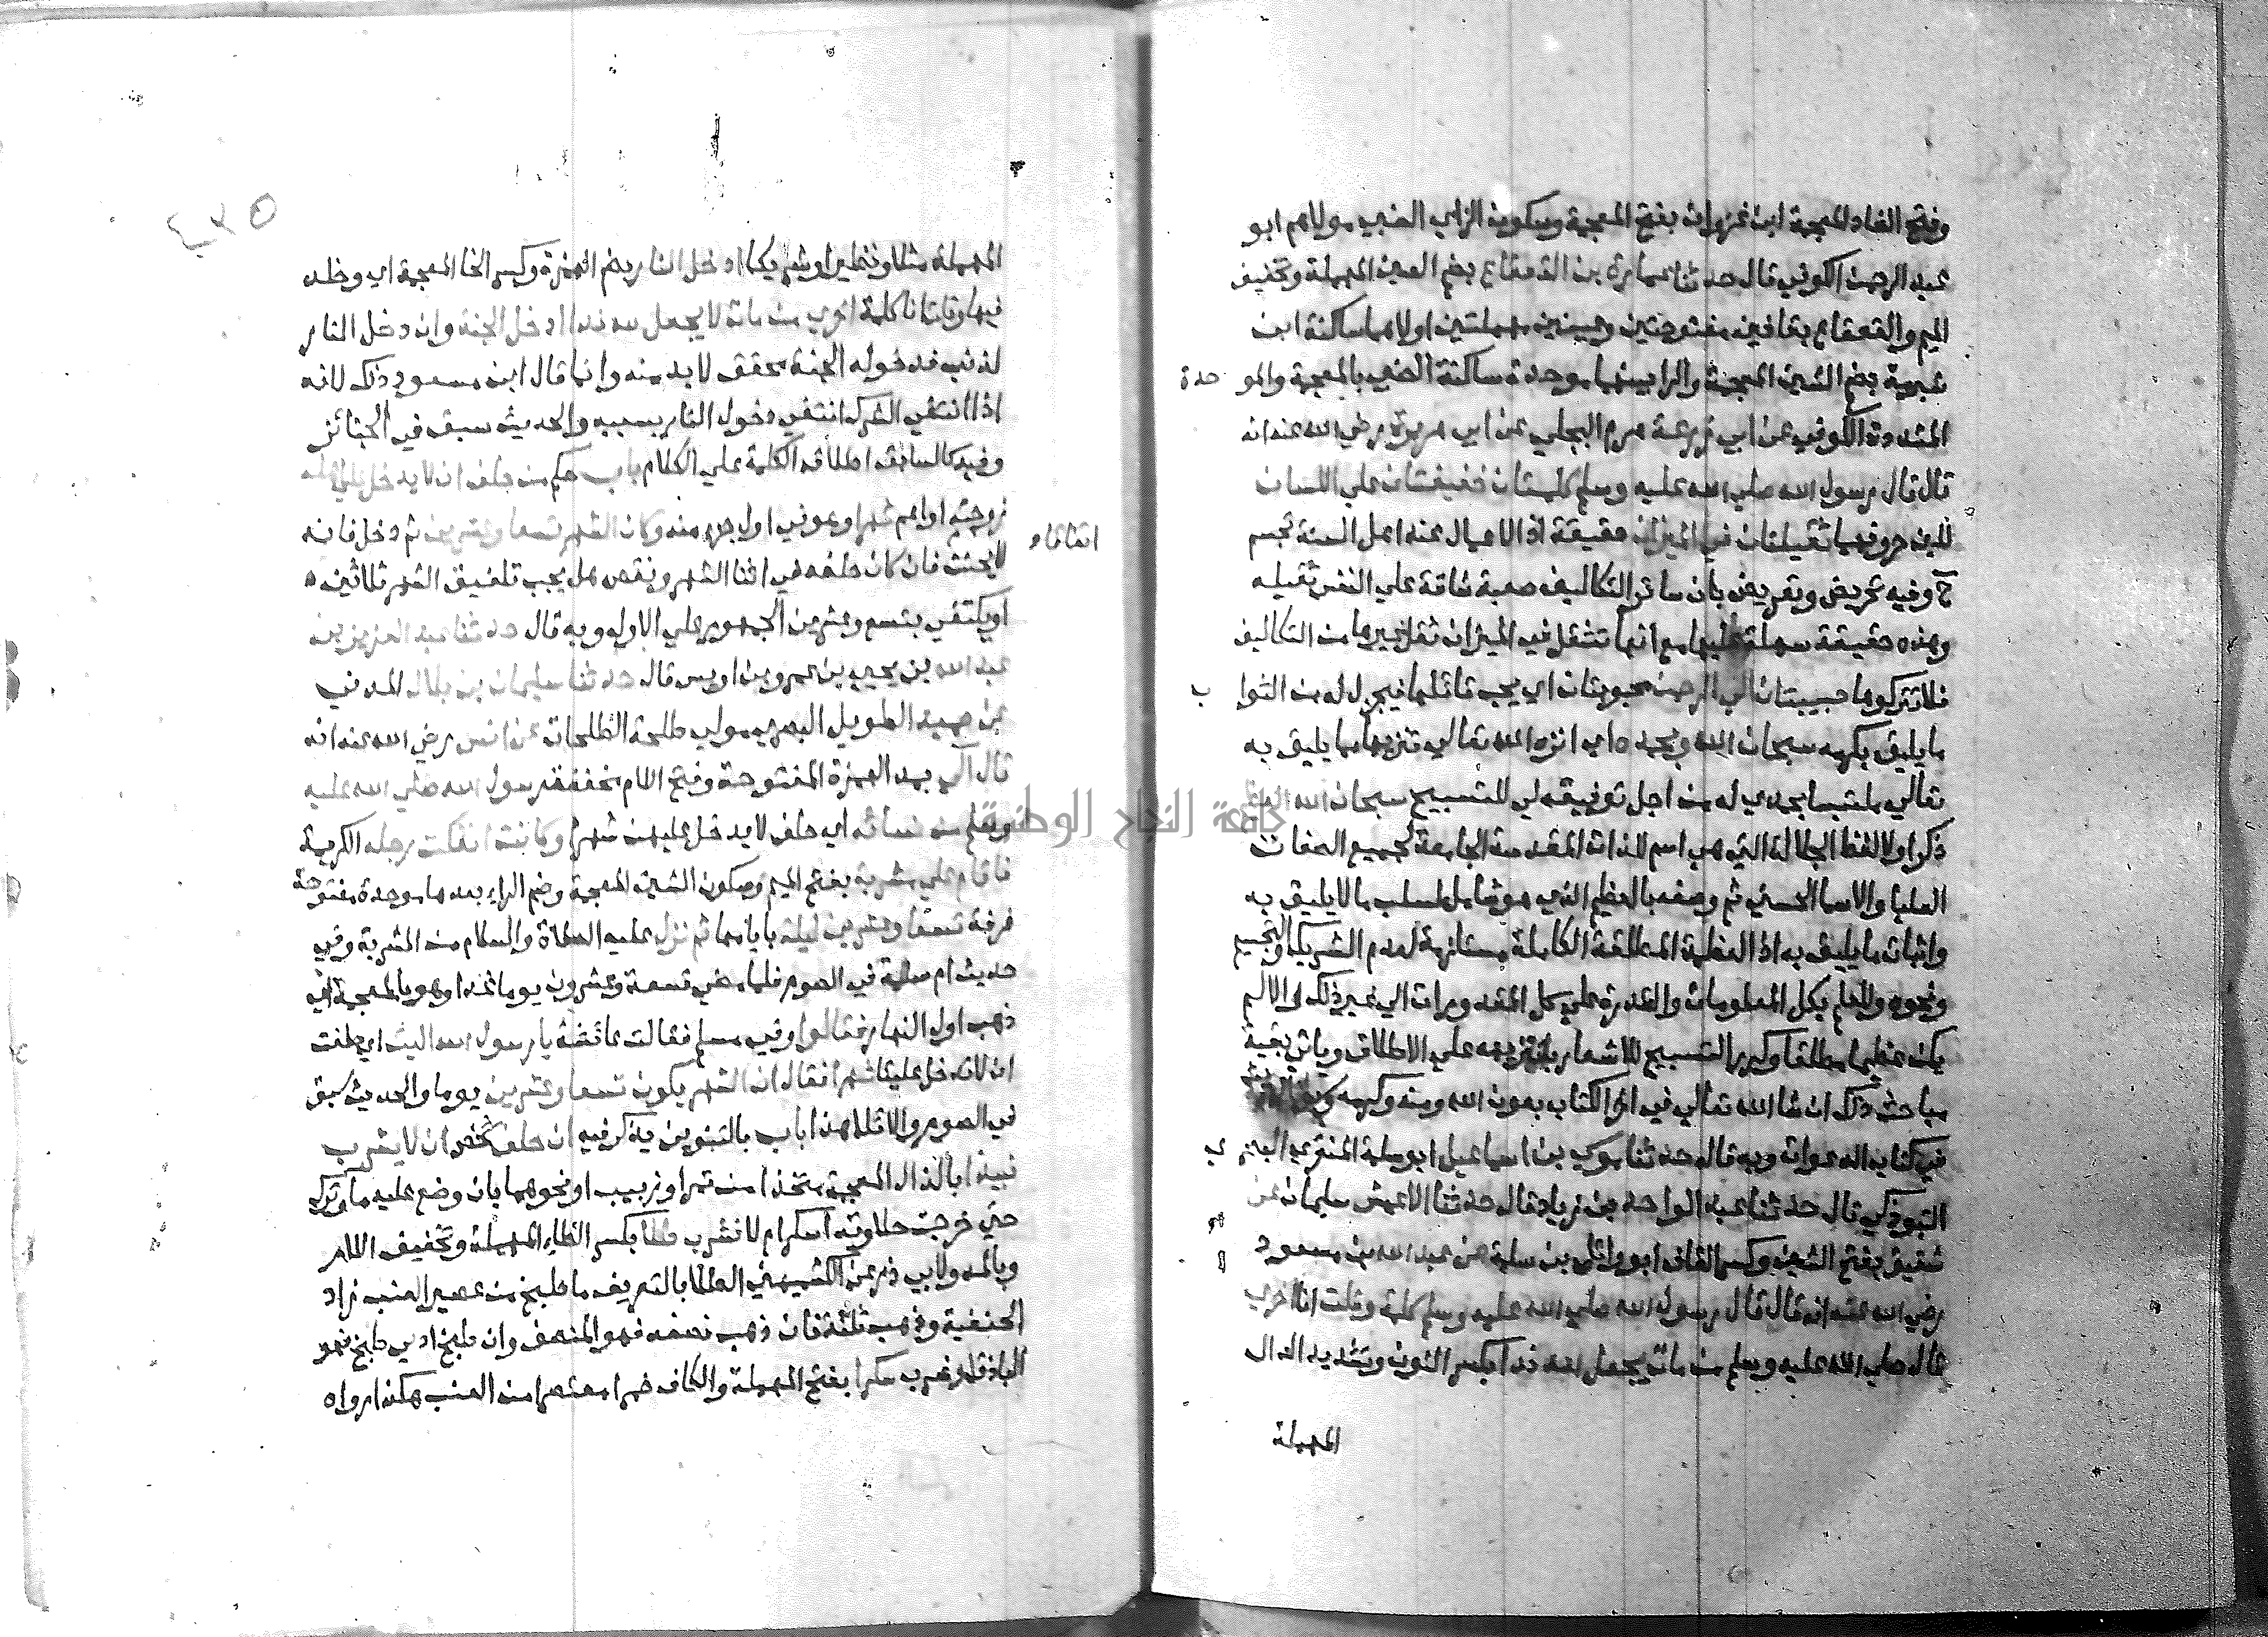 وفتح الضاد المعجمة ابن غزوان بفتح المعجمة وسكون الزاي الضبي مولاهم ابو
عبد الرحمن الكوفي قال حدثنا عمارة بن القعقاع بضم العين المهملة وتخفيف
الميم والقعقاع بقافين مفتوحتين وعينين مهملتين اولاهما ساكنة ابن
شبرمة بضم الشين المعجمة والرا بينهما موحدة ساكنة الضبي بالمعجمة والموحدة
المشددة الكوفي عن ابي زرعة هرم البجلي عن ابي هريرة رضي الله عنه انه
قال قال رسول الله صلي الله عليه وسلم كلمتان خفيفتان علي اللسان
للين حروفهما ثقيلتان في الميزان حقيقة اذ الاعمال عند اهل السنة تجسم
ح وفيه تحريض وتعريض بان سائر التكاليف صعبة شاقة علي النفس ثقيله
وهذه خفيفة سهلة عليها مع انها تثقل في الميزان ثقل غيرها من التكاليف
فلا تتركوها حبيبتان الي الرحمن محبوبتان اي يحب قائلهما فيجزل له من الثواب
ما يليق بكرمه سبحان الله وبحمده اي انزه الله تعالي تنزيها عما يليق به
تعالي ملتبسا بحمدي له من اجل توفيقه لي للتسبيح سبحان الله العظيم
ذكر اولا لفظ الجلالة التي هي اسم للذات المقدسة الجامعة لجميع الصفات
العليا والاسما الحسني ثم وصفه بالعظيم الذي هو شامل لسلب ما لا يليق به
واثبات ما يليق به اذ العظمة المطلقة الكاملة مستلزمة لعدم الشريك والتجسيم
ونحوه وللعلم بكل المعلومات والقدرة علي كل المقدورات الي غير ذلك والا لم
يكن عظيما مطلقا وكرر التسبيح للاشعار بتنزيهه علي الاطلاق وياتي بقية
مباحث ذلك ان شا الله تعالي في اخر الكتاب بعون الله ومنه وكرمه
في كتاب الدعوات وبه قال حدثنا موسي بن اسماعيل ابو سلمة المنقري البصري
التبوذكي قال حدثنا عبد الواحد بن زياد قال حدثنا الاعمش سليمان عن
شقيق بفتح الشين وكسر القاف ابو وائل بن سلمة عن عبد الله بن مسعود
رضي الله عنه انه قال قال رسول الله صلي الله عليه وسلم كلمة وقلت انا اخري
قال صلي الله عليه وسلم من مات يجعل لله ندا بكسر النون وتشديد الدال
المهملة
جامعة النجاح الوطنية
٤٣٥
المهملة مثلا ونظيرا وشريكا ادخل النار بضم الهمزة وكسر الخا المعجمة اي وخلد
فيها وقلت انا كلمة اخري من مات لا يجعل لله ندا ادخل الجنة وان دخل النار
لذنب فدخوله الجنة محقق لا بد منه وانما قال ابن مسعود ذلك لانه
اذا انتفي الشرك انتفي دخول النار بسببه والحديث سبق في الجنائز
وفيه كالسابقه اطلاق الكلمة علي الكلام باب حكم من حلف ان لا يدخل علي اهله
زوجته او اعم شهرا وهو في اول جزء منه وكان الشهر تسعا وعشرين ثم دخل فانه
اتفاقا
لا يحنث فان كان حلفه في اثنا الشهر ونقص هل يجب تلفيق الشهر ثلاثين
او يكتفي بتسع وعشرين الجمهور علي الاول وبه قال حدثنا عبد العزيز بن
عبد الله بن يحيي بن عمرو بن اويس قال حدثنا سليمان بن بلال المدني
عن حميد الطويل البصري مولي طلحة الطلحات عن انس رضي الله عنه انه
قال آلي بمد الهمزة المفتوحة وفتح اللام مخففة رسول الله صلي الله عليه
وسلم من نسائه اي حلف لا يدخل عليهن شهرا وكانت انفكت رجله الكريمة
فاقام علي مشربة بفتح الميم وسكون الشين المعجمة وضم الراء بعدها موحدة مفتوحة
غرفة تسعا وعشرين ليلة بايامها ثم نزل عليه الصلاة والسلام من المشربة وفي
حديث ام سلمة في الصوم فلما مضي تسعة وعشرون يوما غدا وهو بالمعجمة اي
ذهب اول النهار فقالوا وفي مسلم فقالت عائشة يا رسول الله اليت اي حلفت
ان لا تدخل علينا شهرا فقال ان الشهر يكون تسعا وعشرين يوما والحديث سبق
في الصوم والايلا هذا باب بالتنوين يذكر فيه ان حلف شخص ان لا يشرب
نبيذا بالذال المعجمة متخذا من تمر او زبيب او نحوهما بان وضع عليه ما وترك
حتي خرجت حلاوته اسكر ام لا فشرب طلا بكسر الطاء المهملة وتخفيف اللام
وبالمد ولابي ذر عن الكشميهني الطلا بالتعريف ما طبخ من عصير العنب زاد
الحنفية وذهب ثلثه فان ذهب نصفه فهو المنصف وان طبخ ادني طبخ فهو
الباذق او شرب سكرا بفتح المهملة والكاف خمرا معتصرا من العنب هكذا رواه